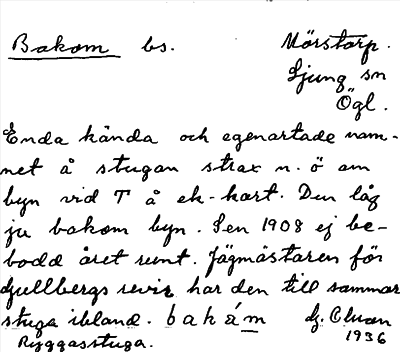 Bakom bs. Mörstorp.
Ljung sn
Ögl.
Enda kända och egenartade nam-
net å stugan strax n. ö om
byn vid T å ek-kart. Den låg
ju bakom byn. Sen 1908 ej be-
bodd året runt. Jägmästaren för
Kjellbergs revir har den till sommar
stuga ibland. bakám
Ryggasstuga. 1936